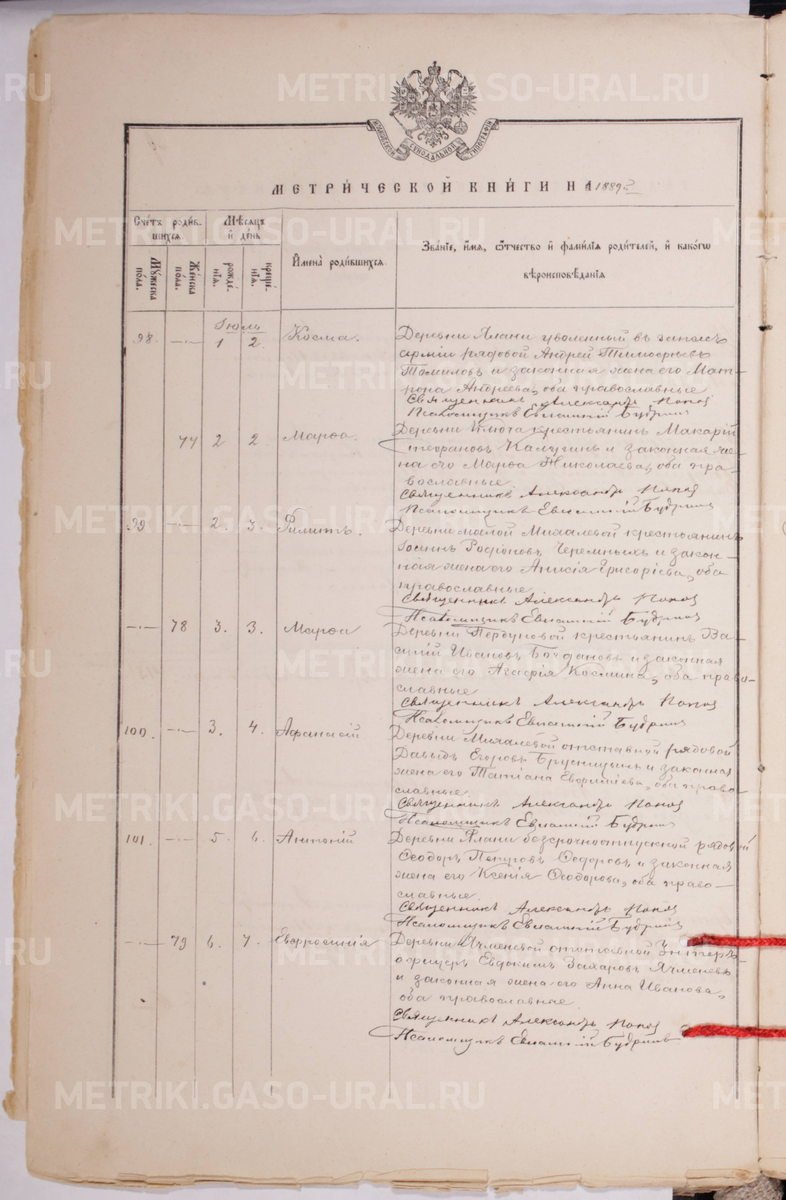 METRIKI.GASO-URAL.RU
МЕТРИ́ЧЕСКОЙ КНИ́ГИ НА 1889
Сче́тъ роди́в-
шихся.
Мѣ́сяцъ
и де́нь
Му́жеска
по́ла.
Же́нска
по́ла.
рожде́-
нїя.
креще́-
нїя.
И́мена̀ роди́вшихся.
Зва́нїе, и́мя, ѻ́тчество и́ фами́лїя роди́телей, и́ како́гѡ
вѣроисповѣ́данїя
Іюль
98. 1 2. Косма.
Деревни Ялани уволенный въ запасъ
арміи рядовой Андрей Тимофеевъ
Томиловъ и законная жена его Мат-
рона Андреева, оба православные
Священникъ Александръ Поповъ
Псаломщикъ Евглампій Будринъ
77 2 2. Марѳа.
Деревни крестьянинъ Макарій
Калугинъ и законная же-
на его Марѳа Николаева, оба пра-
вославные.
Священникъ Александръ Поповъ
Псаломщикъ Евглампій Будринъ
99 2. 3. Филиппъ.
Деревни малой Михалевой крестьянинъ
Іоаннъ Черемныхъ и закон-
ная жена его Анисія Григоріева, оба
православные
Священникъ Александръ Поповъ
Псаломщикъ Евглампій Будринъ
78 3. 3. Марѳа
Деревни Пердуновой крестьянинъ Ва-
силій Ивановъ Богдановъ и законная
жена его Агафія Космина, оба право-
славные
Священникъ Александръ Поповъ
Псаломщикъ Евглампій Будринъ
100. 3. 4. Афанасій
Деревни Михалевой отставной рядовой
Давыдъ Егоровъ Брусницынъ и законная
жена его Татіана Евфиміева, оба право-
славные.
Священникъ Александръ Поповъ
Псаломщикъ Евглампій Будринъ
101. 5. 6. Антоній
Деревни Ялани безсрочноотпускной рядовой
Ѳеодоръ Петровъ Ѳедоровъ и законная
жена его Ксенія Ѳеодорова, оба право-
славные.
Священникъ Александръ Поповъ
Псаломщикъ Евглампій Будринъ
79 6. 7. Евфросинія
Деревни Ячменевой отставной Унтеръ-
офицеръ Евдокимъ Захаровъ Ячменевъ
и законная жена его Анна Иванова,
оба православные
Священникъ Александръ Поповъ
Псаломщикъ Евглампій Будринъ